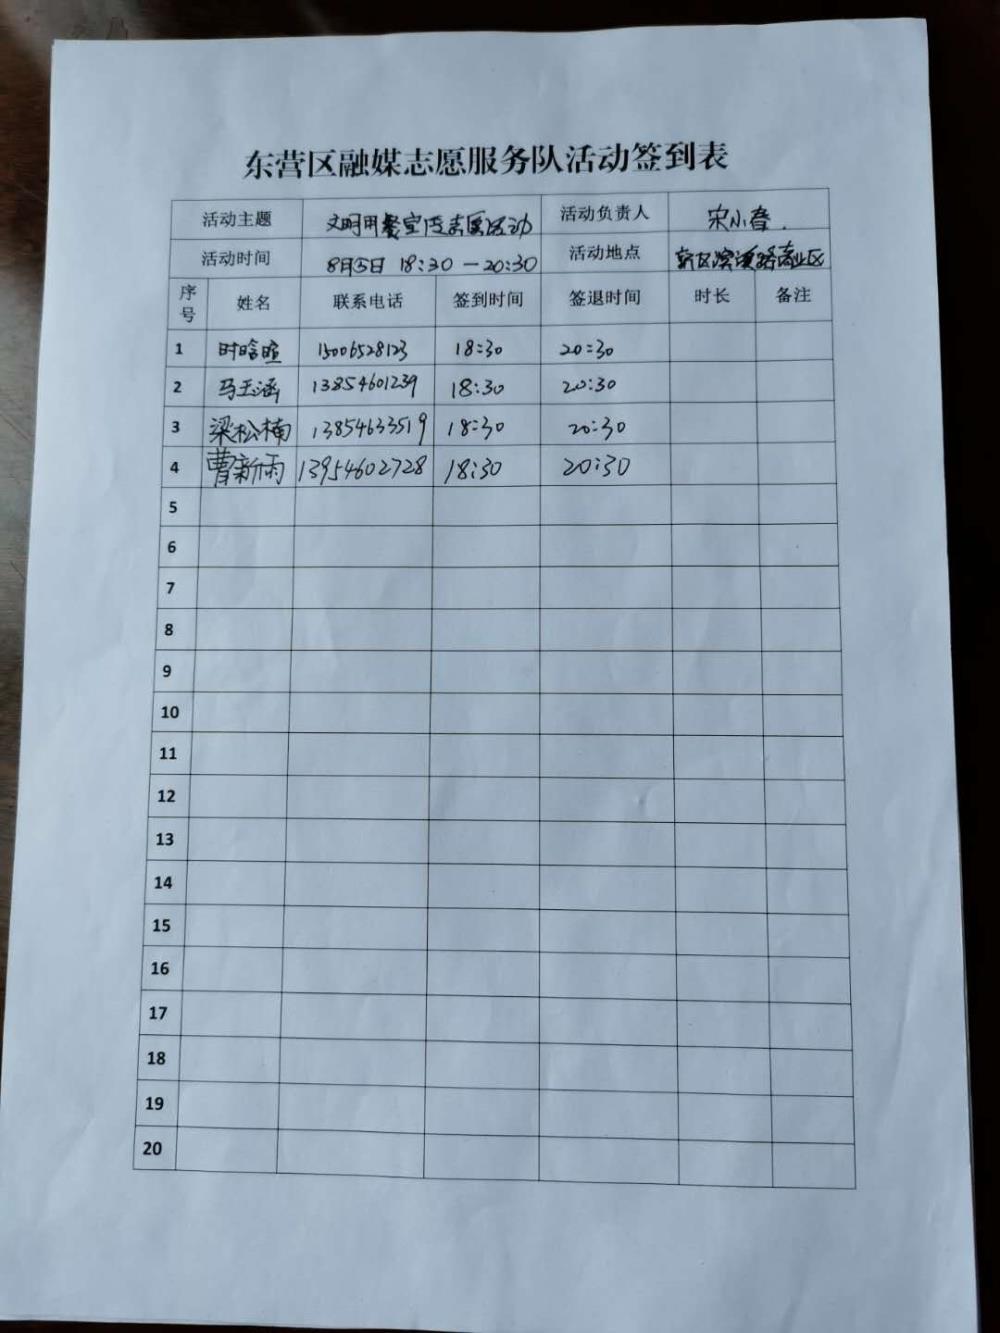 东营区融媒志愿服务队活动签到表
活动主题 文明用餐宣传志愿活动 活动负责人 宋小春.
活动时间 8月5日 18:30 — 20:30 活动地点 路商业区
序号 姓名 联系电话 签到时间 签退时间 时长 备注
1 时晗暄 15006528123 18:30 20:30
2 马玉涵 13854601239 18:30 20:30
3 梁松楠 13854633519 18:30 20:30
4 曹新雨 13954602728 18:30 20:30
5
6
7
8
9
10
11
12
13
14
15
16
17
18
19
20